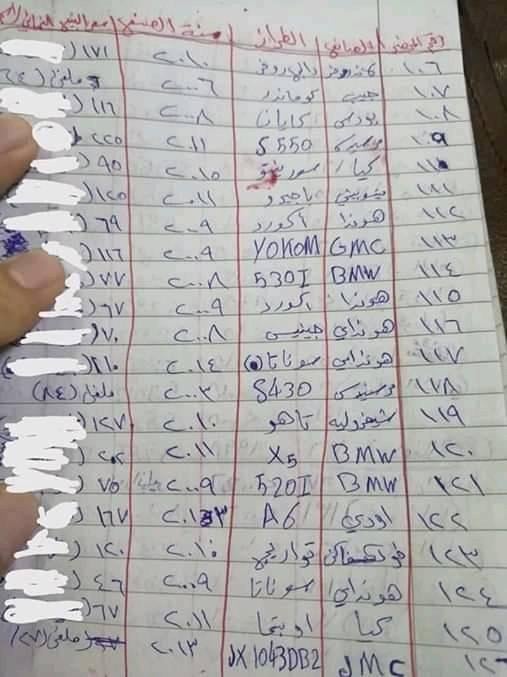 رقم المحضر الصانع الطراز سنة الصنع
١٠٦ ٢٠١٠ (١٧١
١٠٧ جيب كوماندر ٢٠٠٦ ملغي (٦٤
١٠٨ كايانا ٢٠٠٨ (١١٦
١٠٩ مرسيدس S550 ٢٠١١ ٢٢٥
١١٠ كيا سورينتو ٢٠١٥ (٩٥
١١١ باجيرو ٢٠١١ (١٢٥
١١٢ هوندا أكورد ٢٠٠٩ (٦٩
١١٣ GMC YOKOM ٢٠٠٩ (١١٦
١١٤ BMW 530I ٢٠٠٨ (٧٧
١١٥ هوندا اكورد ٢٠٠٩ (٦٧
١١٦ هونداي جينيسس ٢٠٠٨ (٧٠
١١٧ هونداي سوناتا ٢٠١٤ (٢١٠
١١٨ مرسيدس S430 ٢٠٠٣ ملغي (٨٤)
١١٩ شيفروليه تاهو ٢٠١٠ (١٢٧
١٢٠ BMW X5 ٢٠١١
١٢١ BMW 520I ٢٠٠٩ (٧٥
١٢٢ اودي A6 ٢٠١٣ (١٦٧
١٢٣ ٢٠١٠ (١٢٠
١٢٤ هونداي سوناتا ٢٠٠٩ (٤٦
١٢٥ كيا اوبتما ٢٠١١ (٦٧
JMC JX1043DB2 ٢٠١٣ ملغي (٢٧)